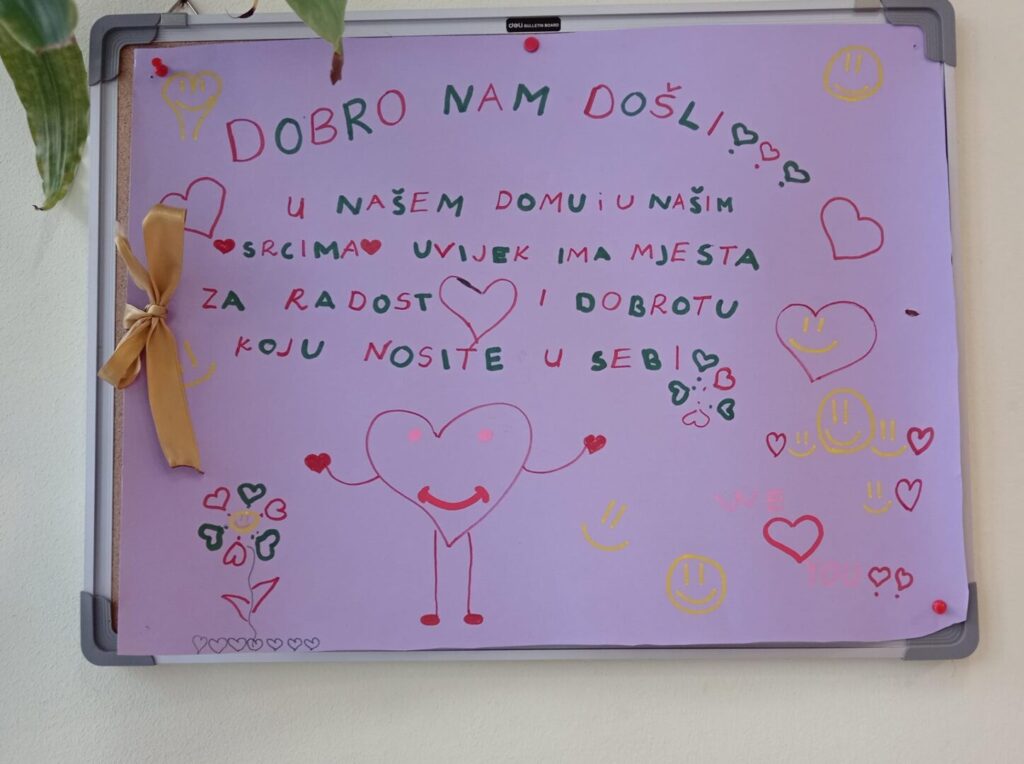 deli BULLETIN BOARD
DOBRO NAM DOŠLI
U NAŠEM DOMU i U NAŠIM
SRCIMA UVIJEK IMA MJESTA
ZA RADOST I DOBROTU
KOJU NOSITE U SEBI
WE
YOU